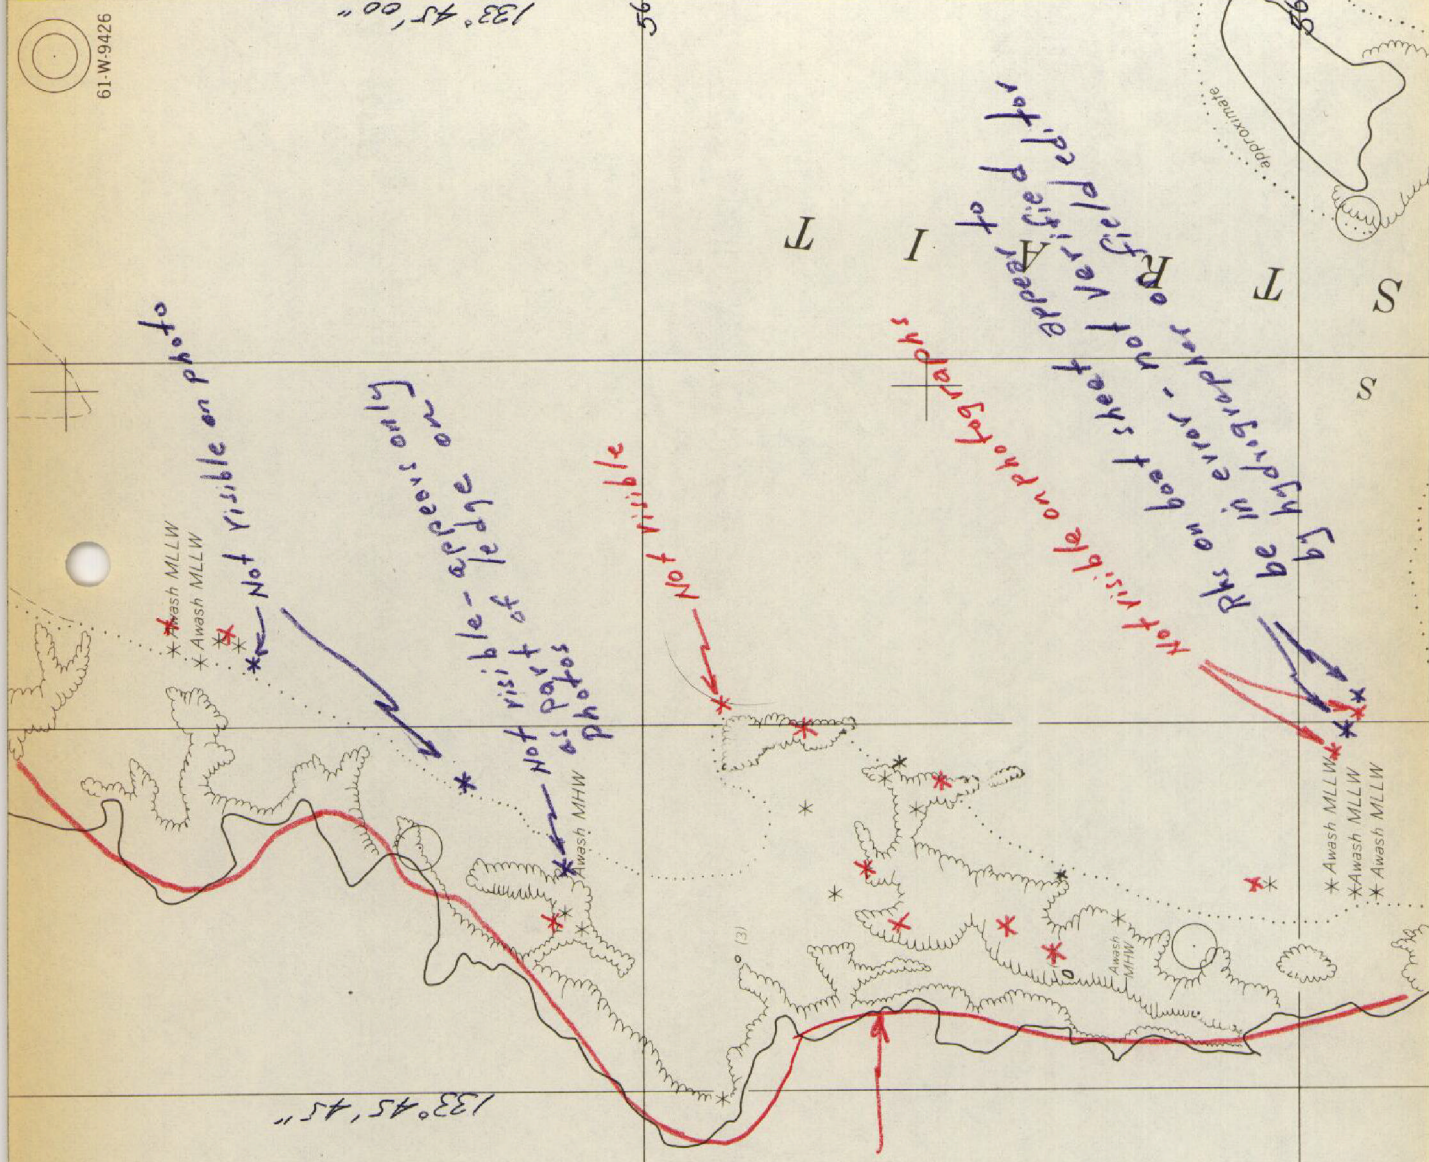 61-W-9426
133° 45' 00"
56
56
approximate
S T R A I T
S
Not visible on photo
Awash MLLW
Awash MLLW
Not visible - appears only
as part of ledge on
photos
Awash MHW
Not visible
Not visible on photographs
Rks on boat sheet appear to
be in error - not verified
by hydrographer or field editor
Awash MLLW
Awash MLLW
Awash MLLW
(3)
Awash
MHW
133° 45' 45"